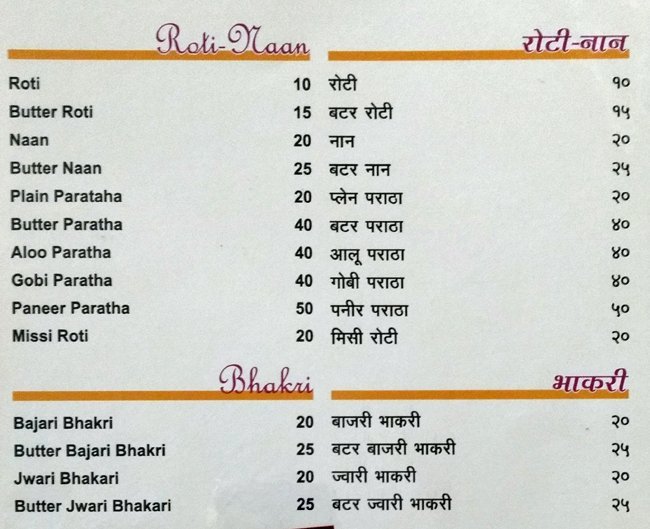 Roti-Naan रोटी-नान
Roti 10 रोटी १०
Butter Roti 15 बटर रोटी १५
Naan 20 नान २०
Butter Naan 25 बटर नान २५
Plain Parataha 20 प्लेन पराठा २०
Butter Paratha 40 बटर पराठा ४०
Aloo Paratha 40 आलू पराठा ४०
Gobi Paratha 40 गोबी पराठा ४०
Paneer Paratha 50 पनीर पराठा ५०
Missi Roti 20 मिसी रोटी २०
Bhakri भाकरी
Bajari Bhakri 20 बाजरी भाकरी २०
Butter Bajari Bhakri 25 बटर बाजरी भाकरी २५
Jwari Bhakari 20 ज्वारी भाकरी २०
Butter Jwari Bhakari 25 बटर ज्वारी भाकरी २५